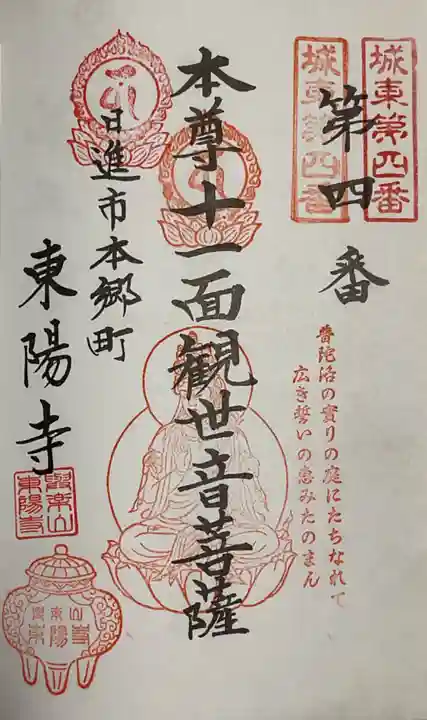 城東第四番
城東第四番
第四番
普陀洛の實りの庭にたちなれて
広き誓いの恵みたのまん
本尊十一面観世音菩薩
日進市本郷町
東陽寺
東陽寺